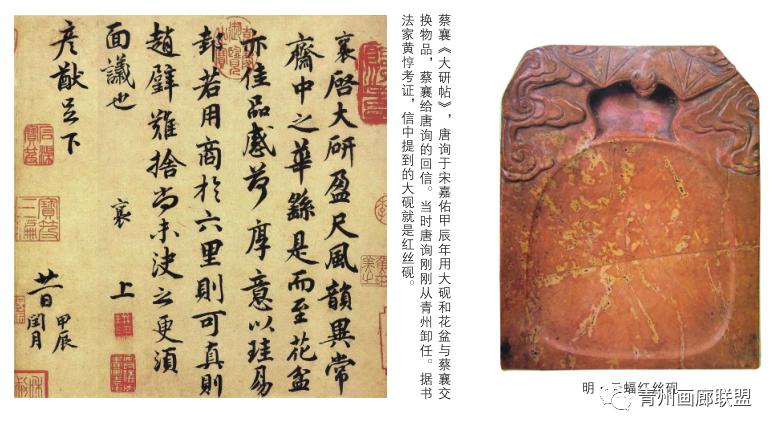 襄啓大研盈尺風韻異常
齋中之華繇是而至花盆
亦佳品感荷厚意以珪易
邽若用商於六里則可真則
趙璧難捨尚未決之更須
面議也 襄 上
彥猷足下
甲辰
閏月
蔡襄《大研帖》，唐询于宋嘉佑甲辰年用大砚和花盆与蔡襄交
换物品，蔡襄给唐询的回信。当时唐询刚刚从青州卸任。据书
法家黄惇考证，信中提到的大砚就是红丝砚。
明·云蝠红丝砚
青州画廊联盟